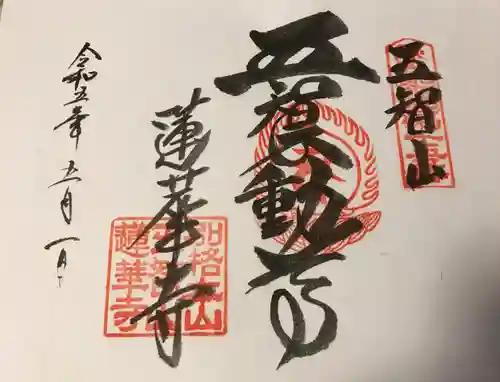 五智山
五智不動尊
蓮華寺
令和五年 五月 一日
別格本山
蓮華寺